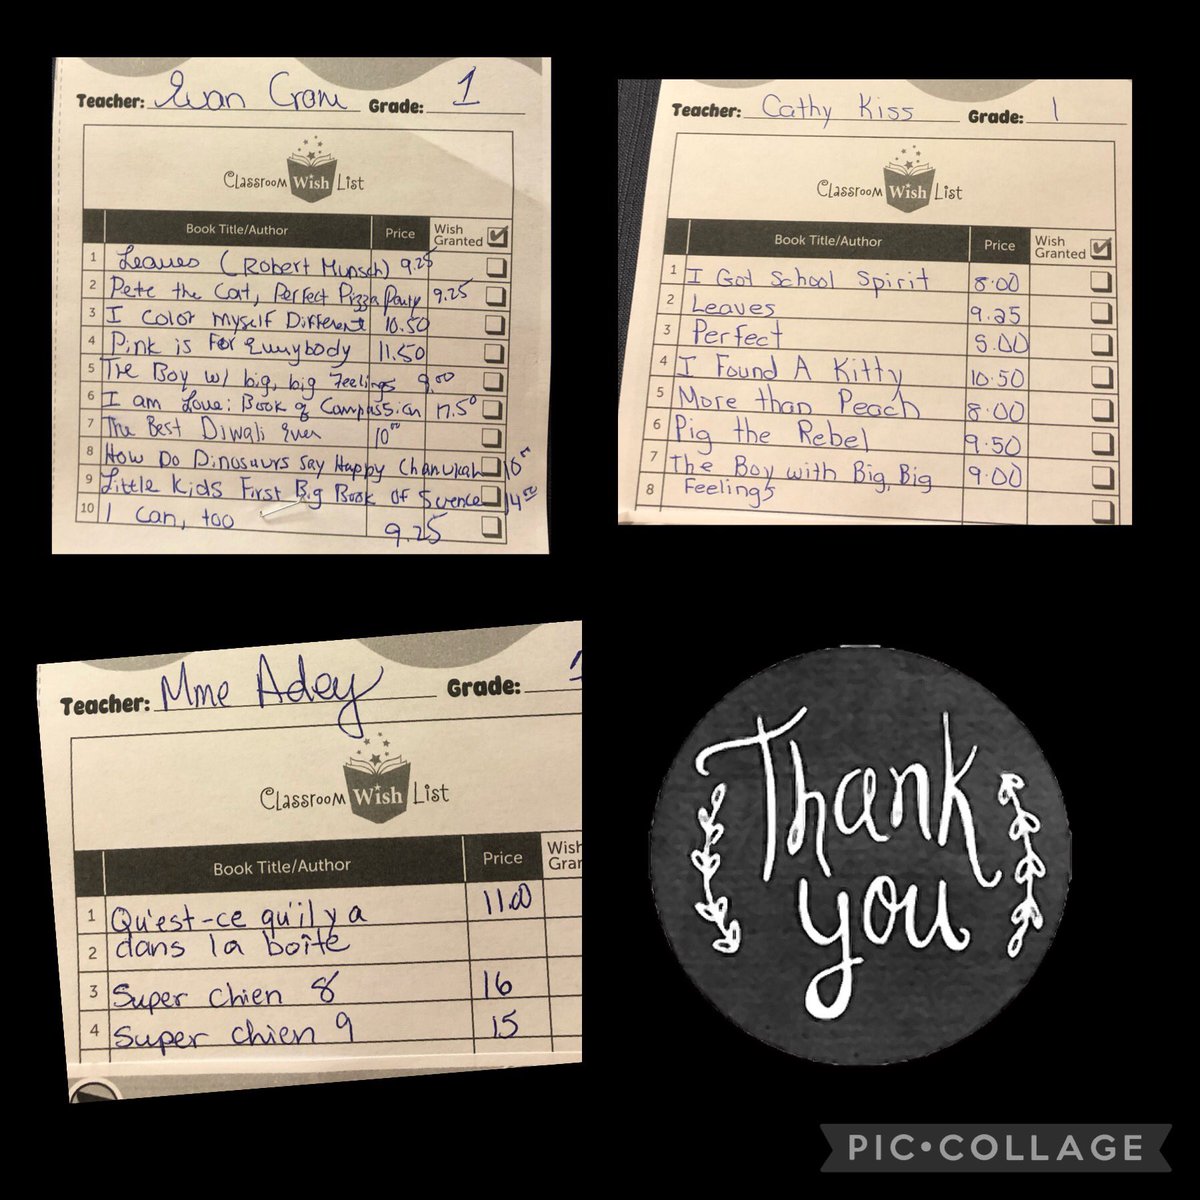 Teacher: Evan Grade: 1
Classroom Wish List
Book Title/Author Price Wish Granted
1 Leaves (Robert Munsch) 9.25
2 Pete the Cat, Perfect Pizza Party 9.25
3 I Color Myself Different 10.50
4 Pink is For Everybody 11.50
5 The Boy w/ big, big Feelings 9.00
6 I am Love: Book of Compassion 17.50
7 The Best Diwali Ever 10.00
8 How Do Dinosaurs Say Happy Chanukah
9 Little Kids First Big Book of Science 14.00
10 I can, too 9.25
Teacher: Cathy Kiss Grade: 1
Classroom Wish List
Book Title/Author Price Wish Granted
1 I Got School Spirit 8.00
2 Leaves 9.25
3 Perfect
4 I Found A Kitty 10.50
5 More than Peach 8.00
6 Pig the Rebel 9.50
7 The Boy with Big, Big 9.00
8 Feelings
Teacher: Mme Adey Grade: 1
Classroom Wish List
Book Title/Author Price
1 Qu'est-ce qu'il y a 11.00
2 dans la boîte
3 Super chien 8 16
4 Super chien 9 15
Thank
you
PIC•COLLAGE